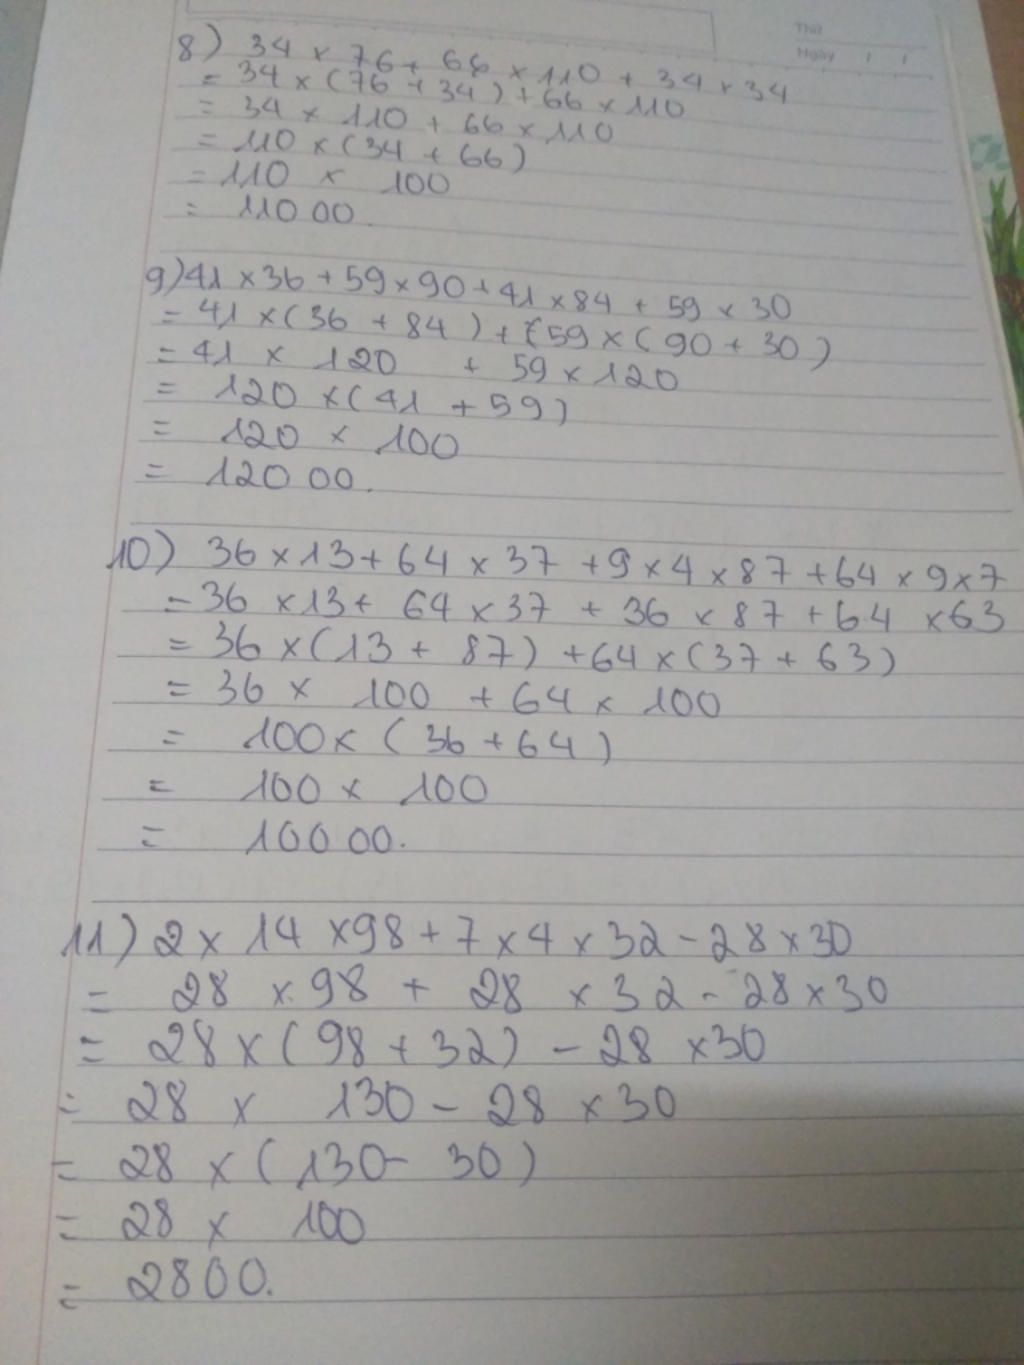 Thứ
Ngày / /
8) 34 x 76 + 66 x 110 + 34 x 34
= 34 x (76 + 34) + 66 x 110
= 34 x 110 + 66 x 110
= 110 x (34 + 66)
= 110 x 100
= 110 00.
9) 41 x 36 + 59 x 90 + 41 x 84 + 59 x 30
= 41 x (36 + 84) + (59 x (90 + 30)
= 41 x 120 + 59 x 120
= 120 x (41 + 59)
= 120 x 100
= 120 00.
10) 36 x 13 + 64 x 37 + 9 x 4 x 87 + 64 x 9 x 7
= 36 x 13 + 64 x 37 + 36 x 87 + 64 x 63
= 36 x (13 + 87) + 64 x (37 + 63)
= 36 x 100 + 64 x 100
= 100 x (36 + 64)
= 100 x 100
= 100 00.
11) 2 x 14 x 98 + 7 x 4 x 32 - 28 x 30
= 28 x 98 + 28 x 32 - 28 x 30
= 28 x (98 + 32) - 28 x 30
= 28 x 130 - 28 x 30
= 28 x (130 - 30)
= 28 x 100
= 2800.